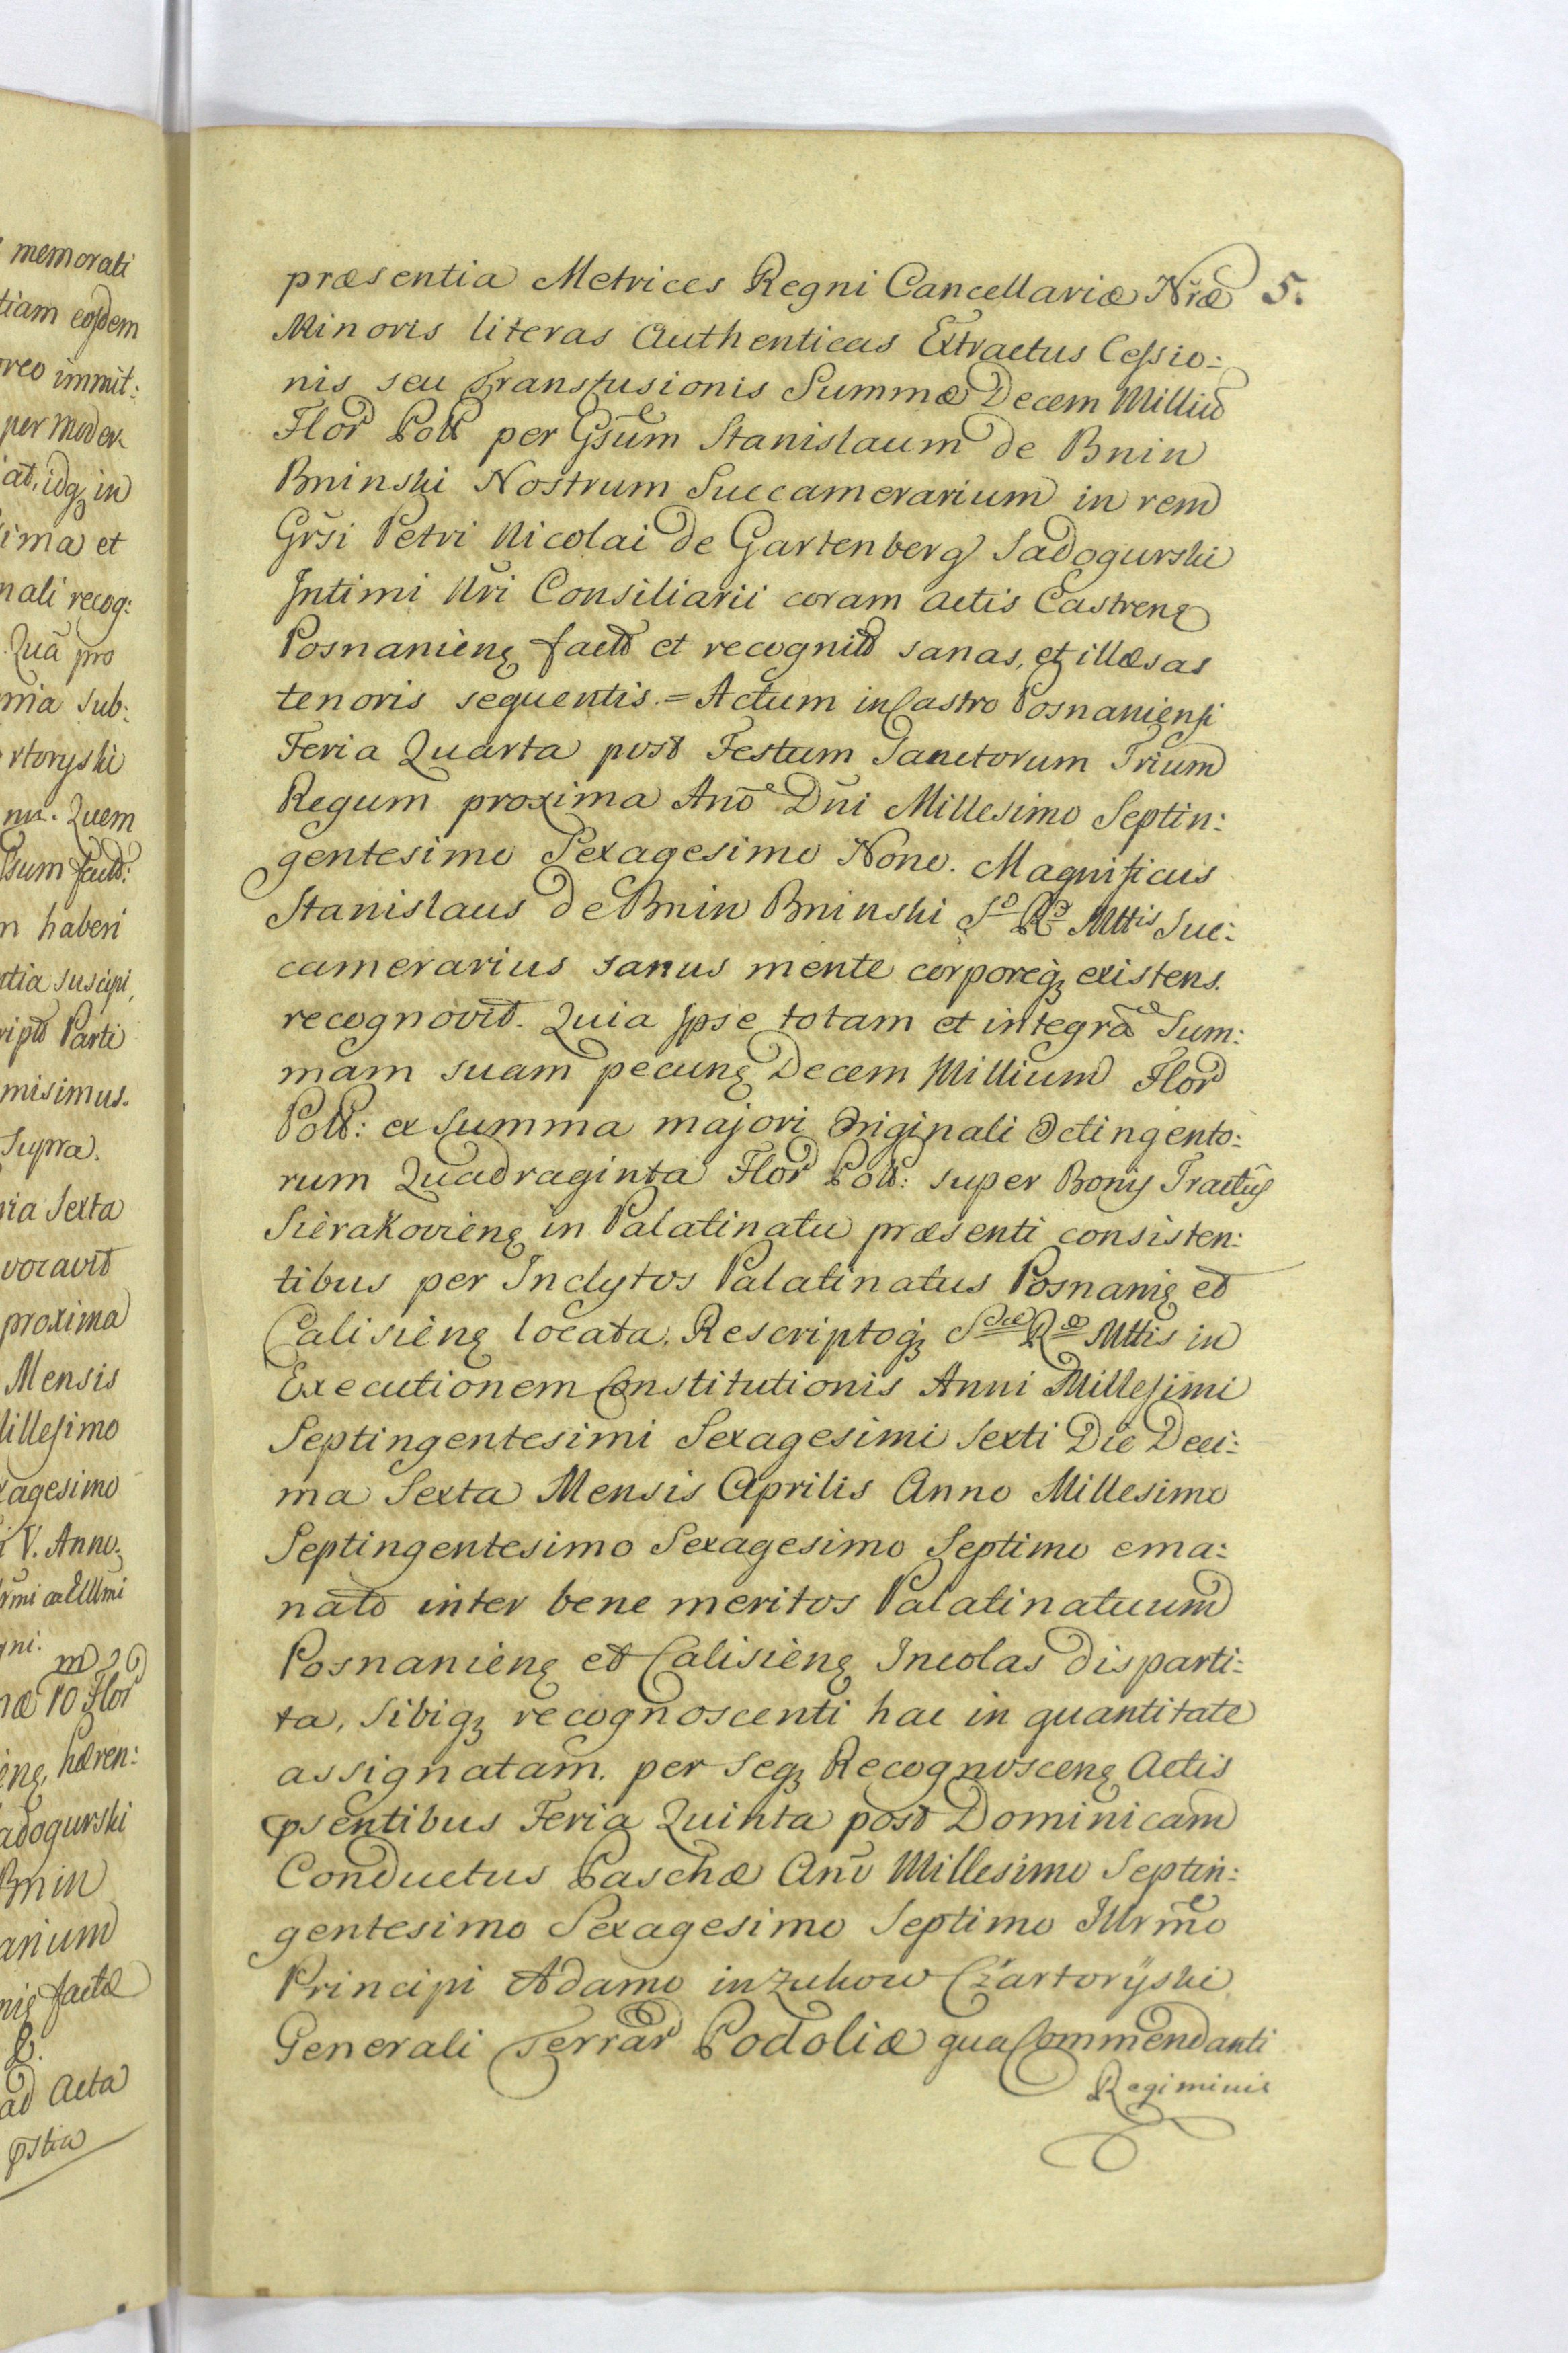 memorati
tiam eosdem
oreo immit:
per moder
at, idq in
ima et
nali recog:
Quā pro
nia sub:
rtoryski
nu. Quem
sum fact:
n haberi
ntia suscipi,
ript Parti
misimus.
Supra.
ria Sexta
vocavit
proxima
Mensis
illesimo
xagesimo
V. Anno
yni.
næ 10 Flor
hæren:
adogurski
Bnin
arium
factæ
ad Acta
pstia
præsentia Metrices Regni Cancellariæ Nræ 5.
Minoris literas Authenticas Extractus Cessio:
nis seu Transfusionis Summæ Decem Milliū
Flor Poll per Gsum Stanislaum de Bnin
Bninski Nostrum Succamerarium in rem
Grsi Petri Nicolai de Gartenberg Sadogurski
Intimi Nri Consiliarii coram Actis Castreng
Posnanieng fact et recognit sanas, et illæsas
tenoris sequentis.= Actum in Castro Posnaniensi
Feria Quarta post Festum Sanctorum Trium
Regum proxima Anō Dni Millesimo Septin:
gentesimo Sexagesimo Nono. Magnificus
Stanislaus de Bnin Bninski S R Mttis Suc:
camerarius sanus mente corporeq existens.
recognovit. Quia Ipse totam et integrā Sum:
mam suam pecung Decem Millium Flor
Poll: ex Summa majori Originali Octingento:
rum Quadraginta Flor Poll: super Bonis Tractus
Sierakovieng in Palatinatu præsenti consisten:
tibus per Inclytos Palatinatus Posnanig et
Calisieng locata. Rescriptoq Sæ Ræ Mttis in
Executionem Constitutionis Anni Millesimi
Septingentesimi Sexagesimi Sexti Die Deci:
ma Sexta Mensis Aprilis Anno Millesimo
Septingentesimo Sexagesimo Septimo ema:
nato inter bene meritos Palatinatuum
Posnanieng et Calisieng Incolas disparti:
ta, Sibiq recognoscenti hac in quantitate
assignatam. per seq Recognosceng Actis
psentibus Feria Quinta post Dominicam
Conductus Paschæ Anō Millesimo Septin:
gentesimo Sexagesimo Septimo Illrmo
Principi Adamo in Zukow Czartoryski
Generali Terrar Podoliæ qua Commendanti
Regiminis